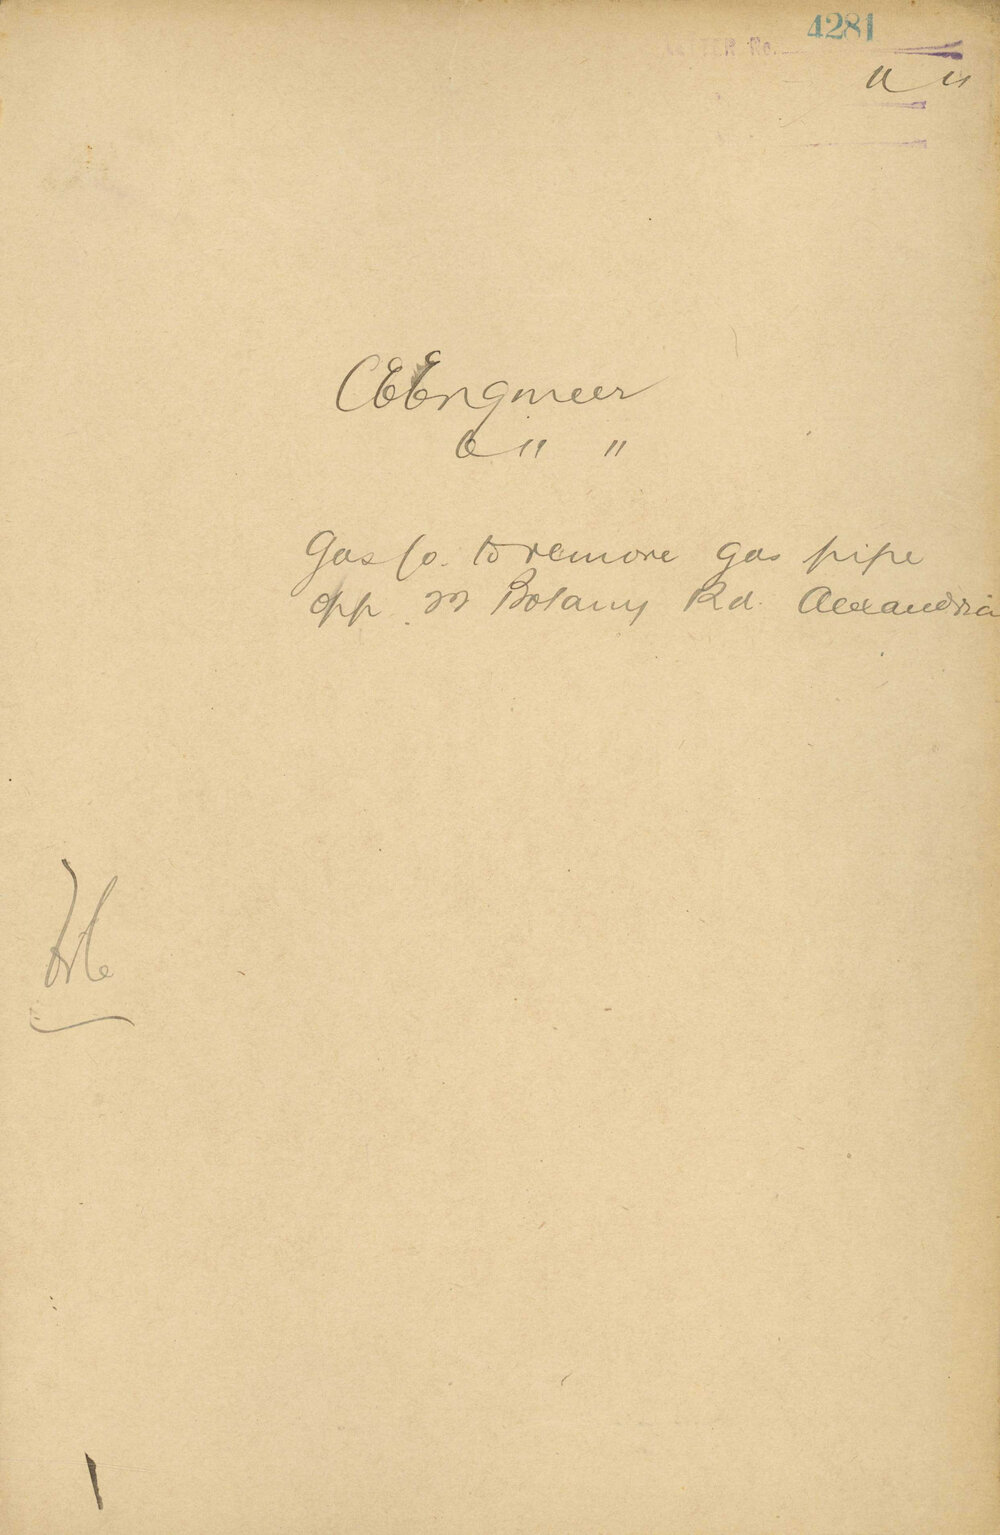 LETTER No. 4281
" "
Engineer
" "
Gas Co. to remove gas pipe
opp. Botany Rd. Alexandria